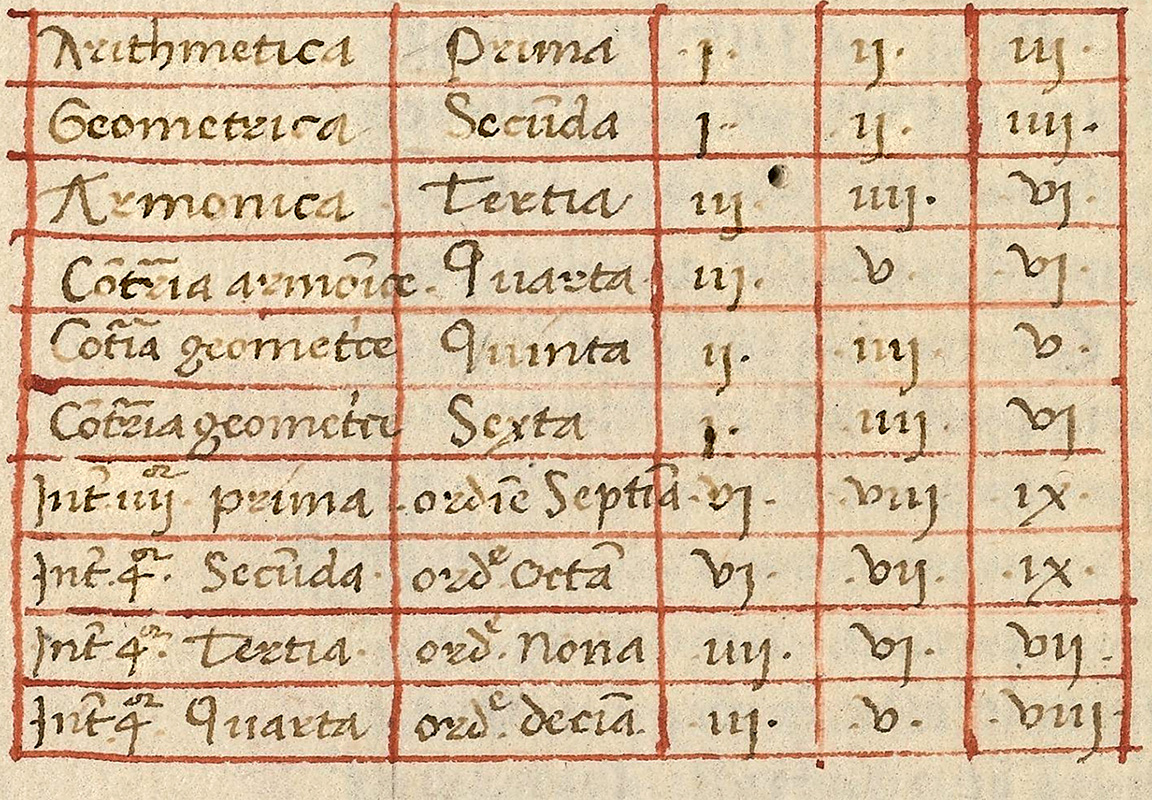 Arithmetica Prima ·j· ij· iij·
Geometrica Secūda j· ij· iiij·
Armonica Tertia iij· iiij· vj·
Cōtr̄ia armōice· Quarta iij· v· vj·
Cōtīa geomet'ce Quinta ij· iiij· v·
Cōtr̄ia geomet'ce Sexta j· iiij· vj
Int̄ iiijᵒʳ prima ·ordīe Septīa vj· viij ix·
Int̄·4ᵒʳ· Secūda· ordᵉ Octā vj· ·vij· ·ix·
Int̄ 4ᵒʳ· Tertia· ordᵉ· Nona iiij· vj· vij·
Int̄·4ᵒʳ· Quarta ordᵉ· decīa· iij· v· ·viij·